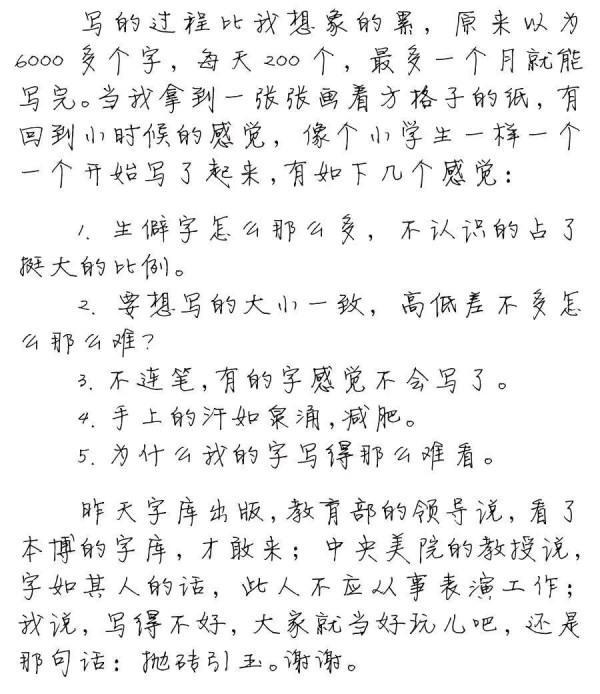 写的过程比我想象的累，原来以为
6000多个字，每天200个，最多一个月就能
写完。当我拿到一张张画着方格子的纸，有
回到小时候的感觉，像个小学生一样一个
一个开始写了起来，有如下几个感觉：
1. 生僻字怎么那么多，不认识的占了
挺大的比例。
2. 要想写的大小一致，高低差不多怎
么那么难？
3. 不连笔，有的字感觉不会写了。
4. 手上的汗如泉涌，减肥。
5. 为什么我的字写得那么难看。
昨天字库出版，教育部的领导说，看了
本博的字库，才敢来；中央美院的教授说，
字如其人的话，此人不应从事表演工作；
我说，写得不好，大家就当好玩儿吧，还是
那句话：抛砖引玉。谢谢。